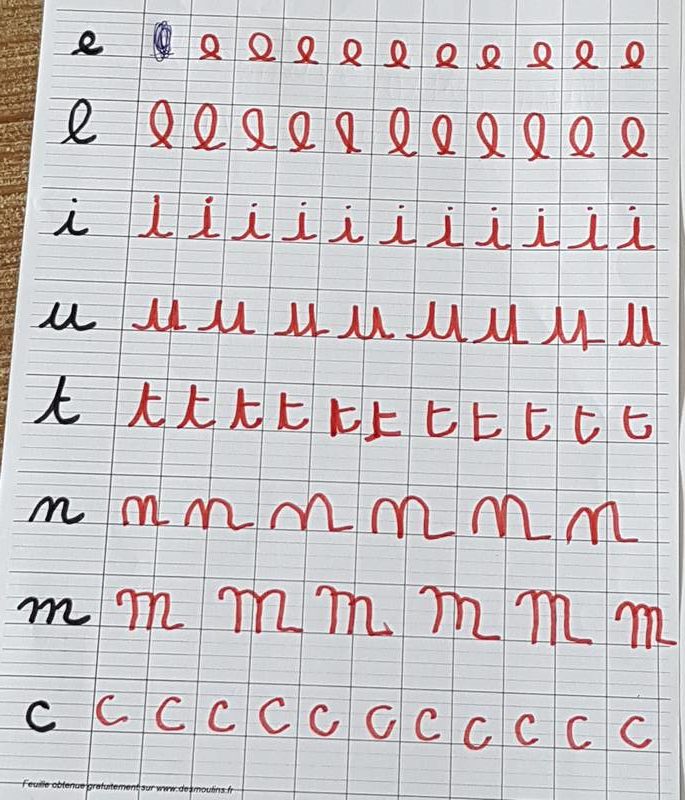 e e e e e e e e e e e
l l l l l l l l l l l l
i i i i i i i i i i i i
u u u u u u u u u
t t t t t t t t t t t t
n n n n n n n
m m m m m m m
c c c c c c c c c c c c
Feuille obtenue gratuitement sur www.desmoulins.fr